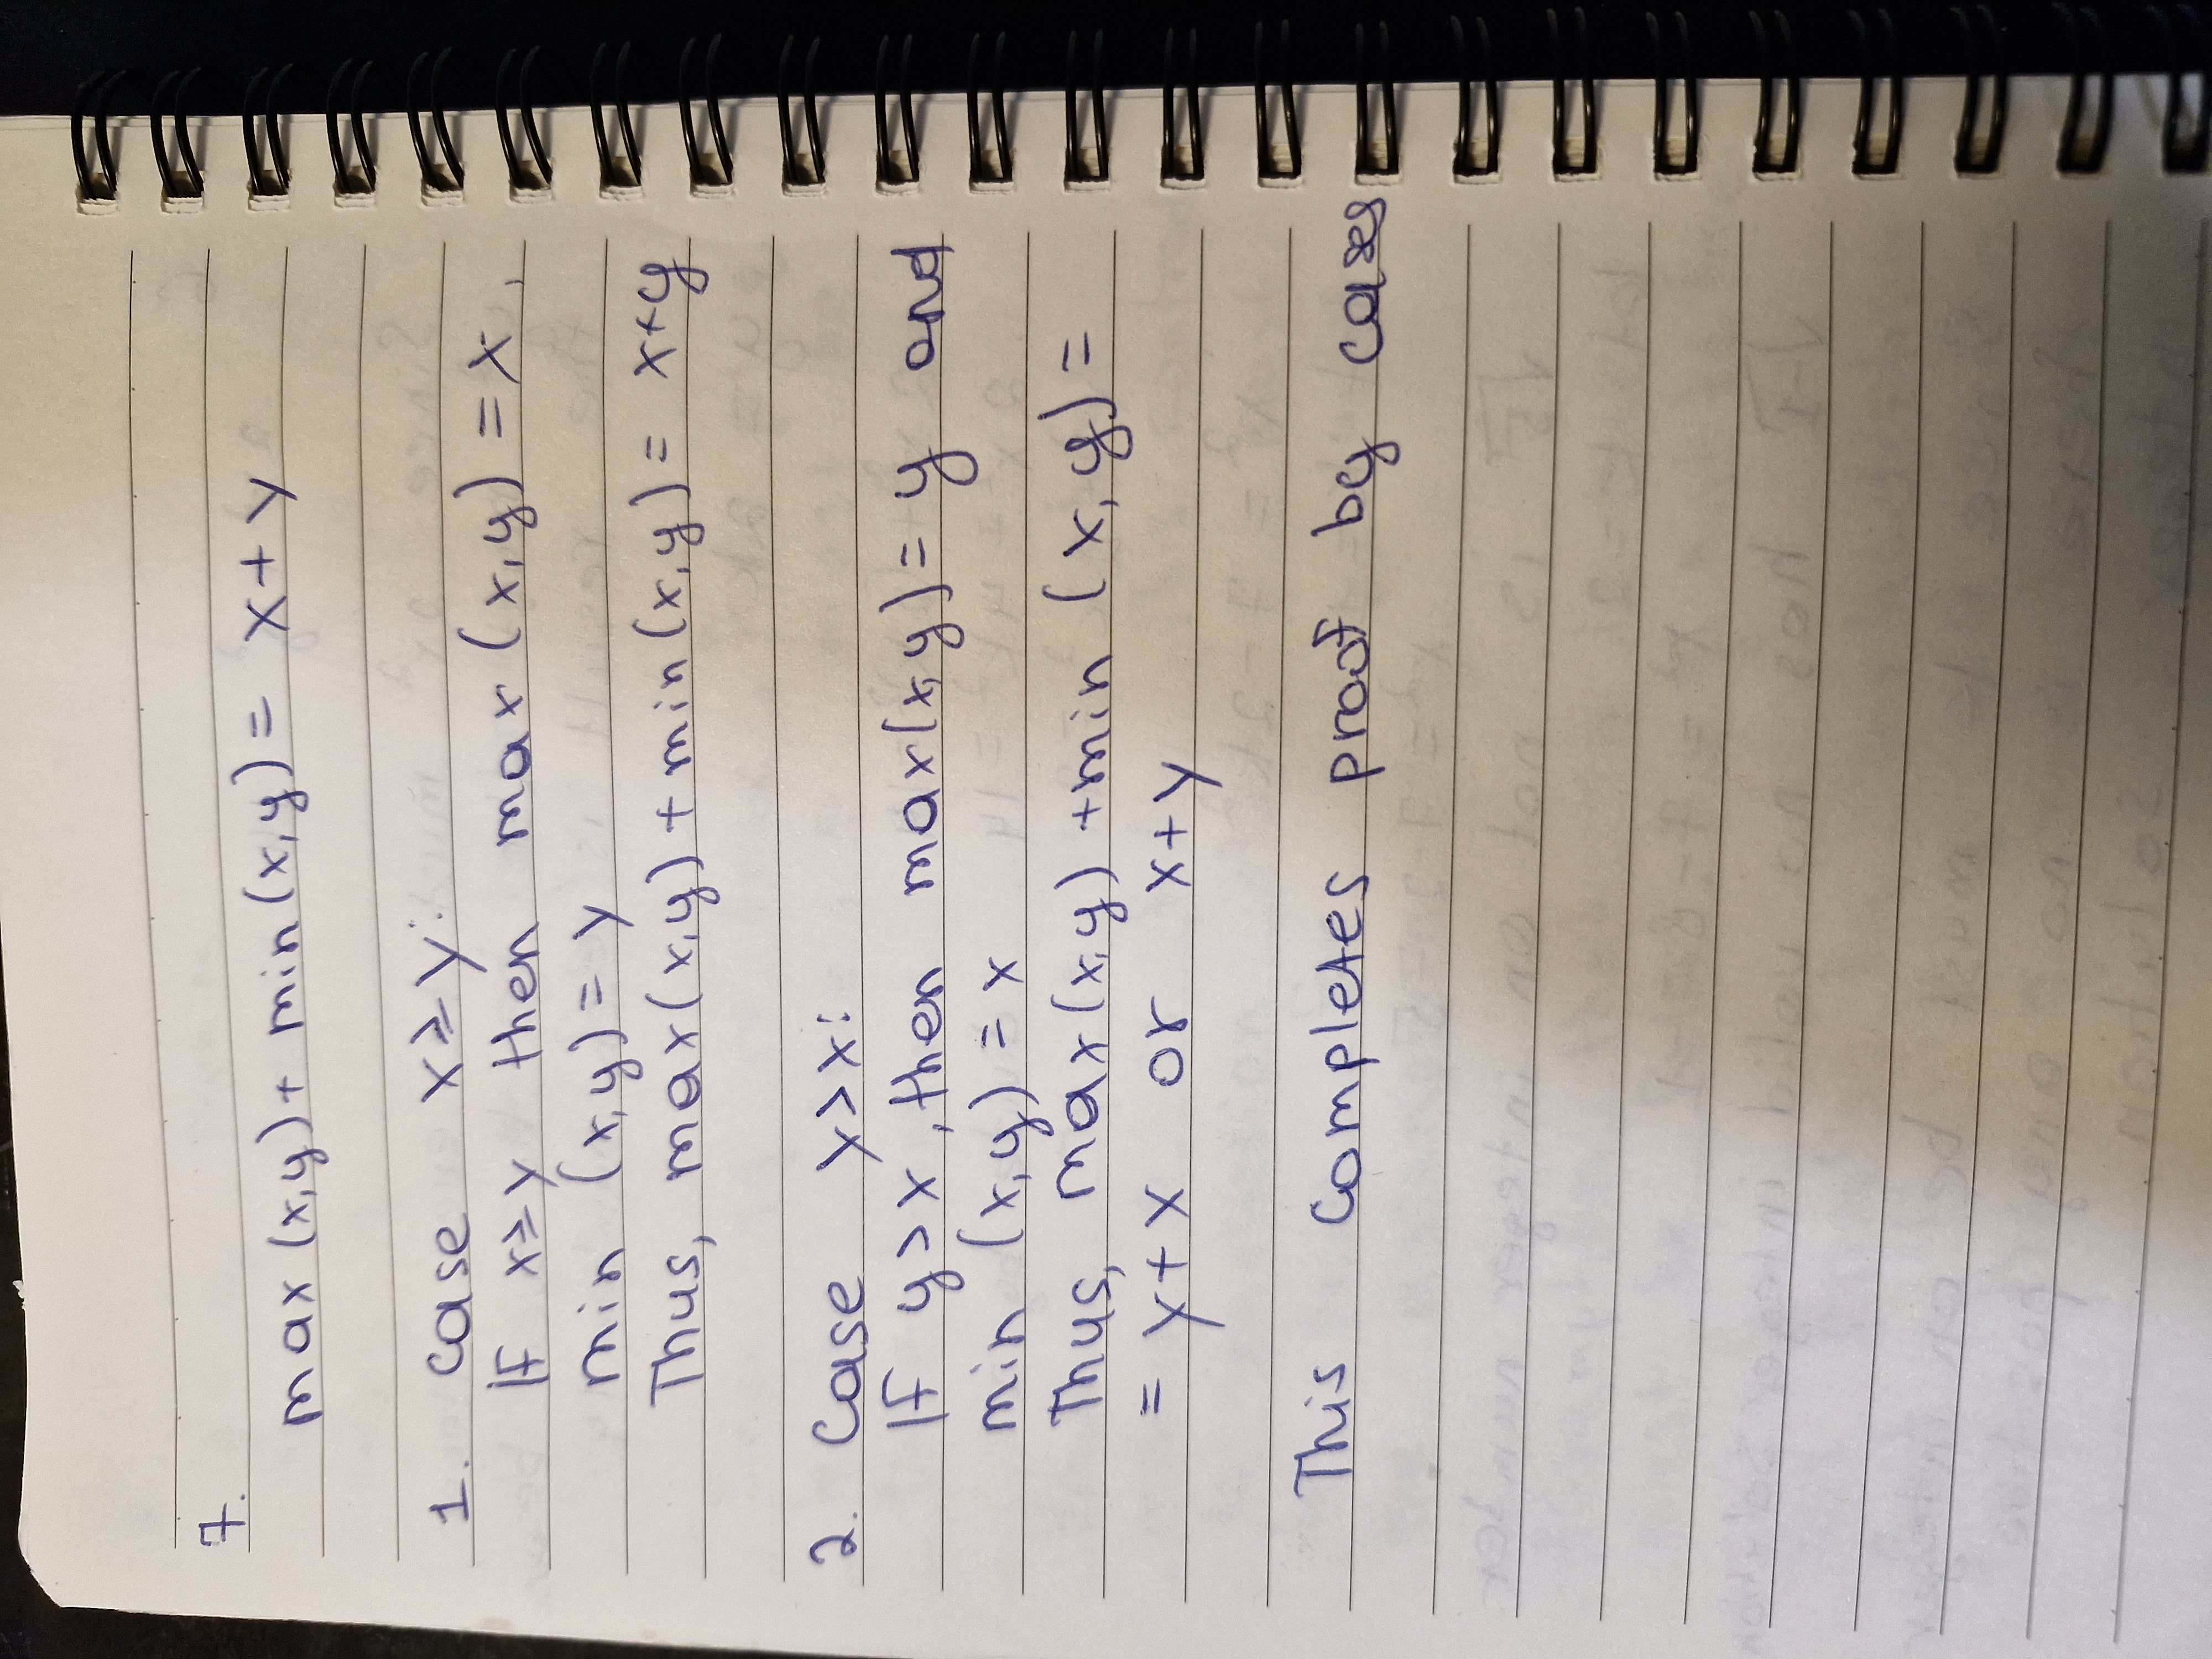 7.
max (x,y) + min (x,y) = x + y
1. case x ≥ y:
If x ≥ y then max (x,y) = x,
min (x,y) = y
Thus, max(x,y) + min(x,y) = x+y
2. Case y > x:
If y > x, then max(x,y) = y and
min (x,y) = x
Thus, max(x,y) + min (x,y) =
= y + x or x + y
This completes proof by cases